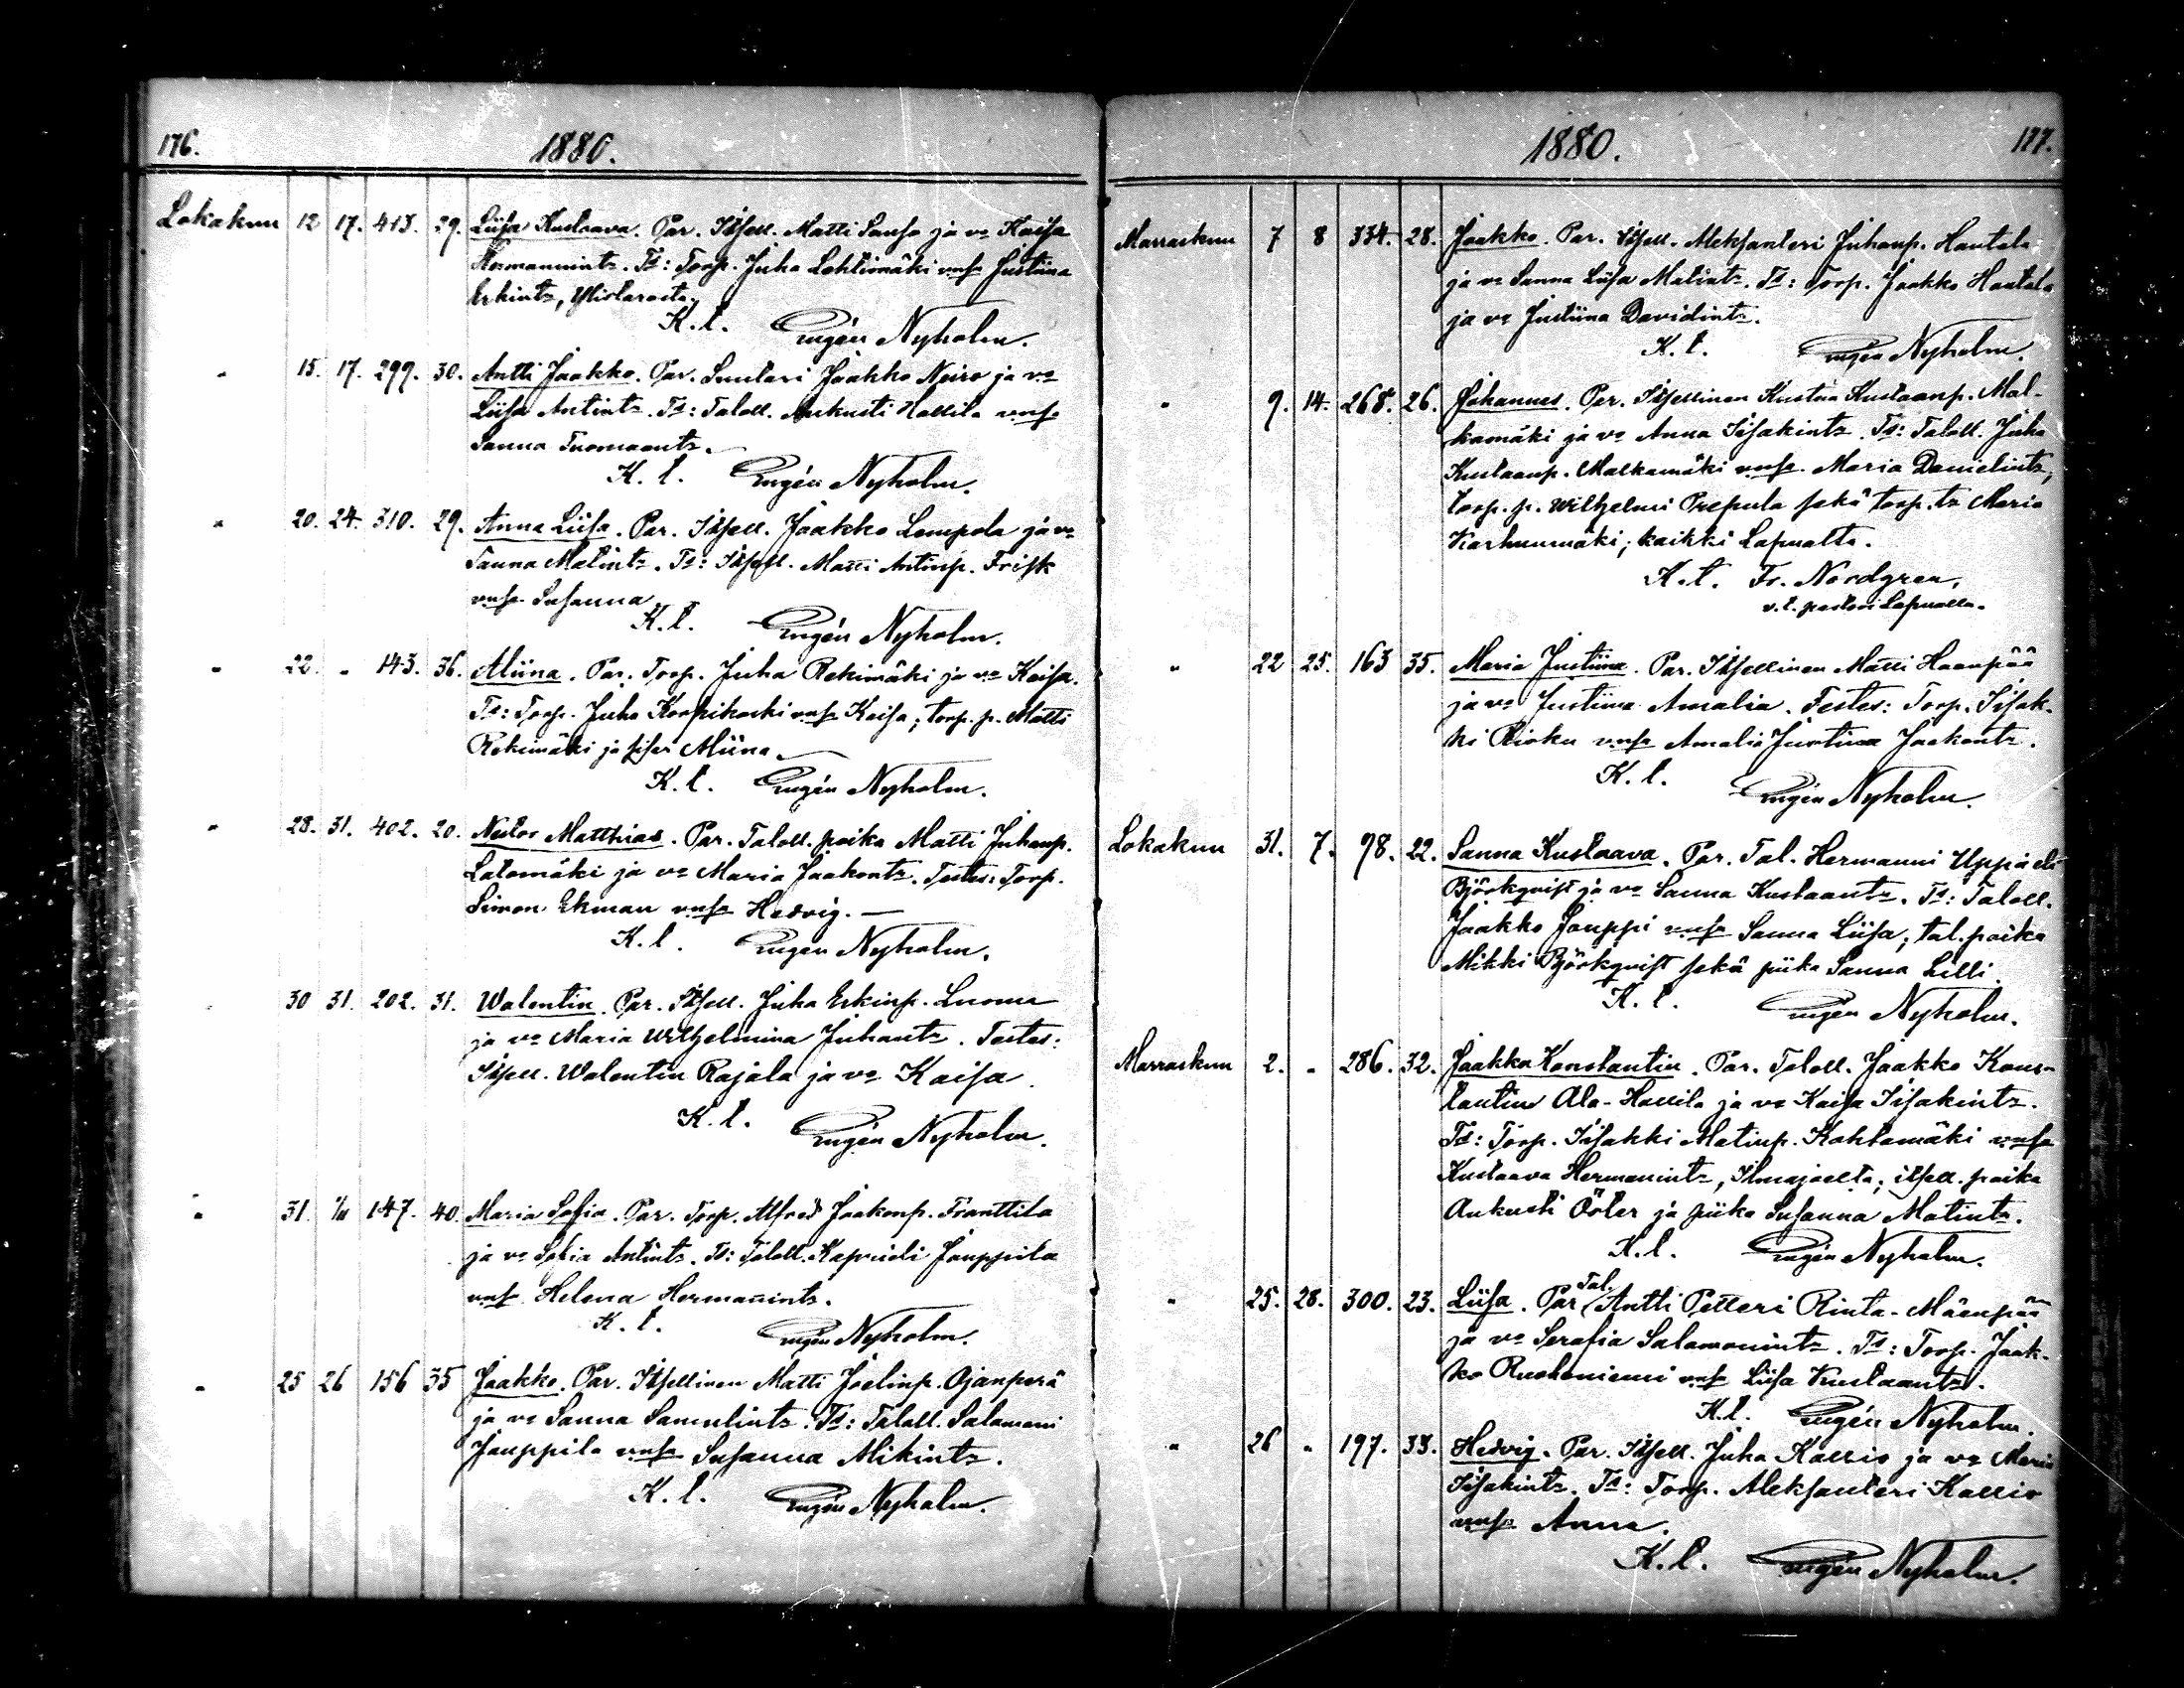 176.
1880.
Lokakuu 12 17. 413. 29. Liisa Kustaava. Par. Itsell. Matti Saufa ja vo Kaisa
Hermannintr. Ts: Torp. Juha Lohtimäki vnsa Justiina
Erkintr, Ylistarosta.
K. l. Eugén Nyholm.
" 15. 17. 299. 30. Antti Jaakko. Par. Suutari Jaakko Neiro ja vo
Liisa Antintr. Ts: Taloll. Aukusti Hallila vnsa
Sanna Tuomaantr.
K. l. Eugén Nyholm.
" 20. 24. 310. 29. Anna Liisa. Par. Itsell. Jaakko Lempola ja vo
Sanna Matintr. Ts: Itsell. Matti Antinp. Frisk
vnsa Susanna
K. l. Eugén Nyholm.
" 22. " 143. 36. Aliina. Par. Torp. Juha Rekimäki ja vo Kaisa.
Ts: Torp. Juho Korpikoski vnsa Kaisa; torp. p. Matti
Rekimäki ja sisar Aliina.
K. l. Eugén Nyholm.
" 28. 31. 402. 20. Nestor Matthias. Par. Taloll. poika Matti Juhanp.
Latomäki ja vo Maria Jaakontr. Testes: Torp.
Simon Ekman vnsa Hedvig. —
K. l. Eugen Nyholm.
30 31. 202. 31. Walentin. Par. Itsell. Juha Erkinp. Luoma
ja vo Maria Wilhelmina Juhantr. Testes:
Itsell. Walentin Rajala ja vo Kaisa.
K. l. Eugén Nyholm.
" 31. 1/11 147. 40. Maria Sofia. Par. Torp. Alfred Jaakonp. Franttila
ja vo Sofia Antintr. Ts: Taloll. Kaprieli Jouppila
vnsa Helena Hermannintr.
K. l. Eugén Nyholm.
" 25 26 156 35 Jaakko. Par. Itsellinen Matti Joelinp. Ojanperä
ja vo Sanna Samulintr. Ts: Taloll. Salamoni
Jouppila vnsa Susanna Mikintr.
K. l. Eugén Nyholm.
1880.
177.
Marraskuu 7 8 334. 28. Jaakko. Par. Itsell. Aleksanteri Juhanp. Hautala
ja vo Sanna Liisa Matintr. Ts: Torp. Jaakko Hautala
ja vo Justiina Davidintr.
K. l. Eugén Nyholm.
" 9. 14. 268. 26. Johannes. Par. Itsellinen Kustaa Kustaanp. Mal-
kamäki ja vo Anna Iisakintr. Ts: Taloll. Juha
Kustaanp. Malkamäki vnsa Maria Danielintr,
torp. p. Wilhelmi Prepula sekä torp. tr Maria
Karhunmäki; kaikki Lapualta.
K. l. Fr. Nordgren,
v.t. pastori Lapualla.
" 22 25. 163 35. Maria Justiina. Par. Itsellinen Matti Haanpää
ja vo Justiina Amalia. Testes: Torp. Iisak-
ki Rioku vnsa Amalia Justiina Jaakontr.
K. l. Eugén Nyholm.
Lokakuu 31. 7. 98. 22. Sanna Kustaava. Par. Tal. Hermanni Uppa eli
Björkqvist ja vo Sanna Kustaantr. Ts: Taloll.
Jaakko Jouppi vnsa Sanna Liisa; tal. poika
Mikki Björkqvist sekä piika Sanna Lilli.
K. l. Eugén Nyholm.
Marraskuu 2. " 286. 32. Jaakko Konstantin. Par. Taloll. Jaakko Kons-
tantin Ala-Hallila ja vo Kaisa Iisakintr.
Ts: Torp. Iisakki Matinp. Kohtamäki vnsa
Kustaava Hermannintr, Ilmajoelta; itsell. poika
Aukusti Öster ja piika Susanna Matintr.
K. l. Eugén Nyholm.
" 25. 28. 300. 23. Liisa. Par Tal. Antti Petteri Rinta-Mäenpää
ja vo Serafia Salamonintr. Ts: Torp. Jaak-
ko Ruohoniemi vnsa Liisa Kustaantr.
K. l. Eugén Nyholm.
" 26 " 197. 33. Hedvig. Par. Itsell. Juha Kallio ja vo Maria
Iisakintr. Ts: Torp. Aleksanteri Kallio
vnsa Anna.
K. l. Eugén Nyholm.